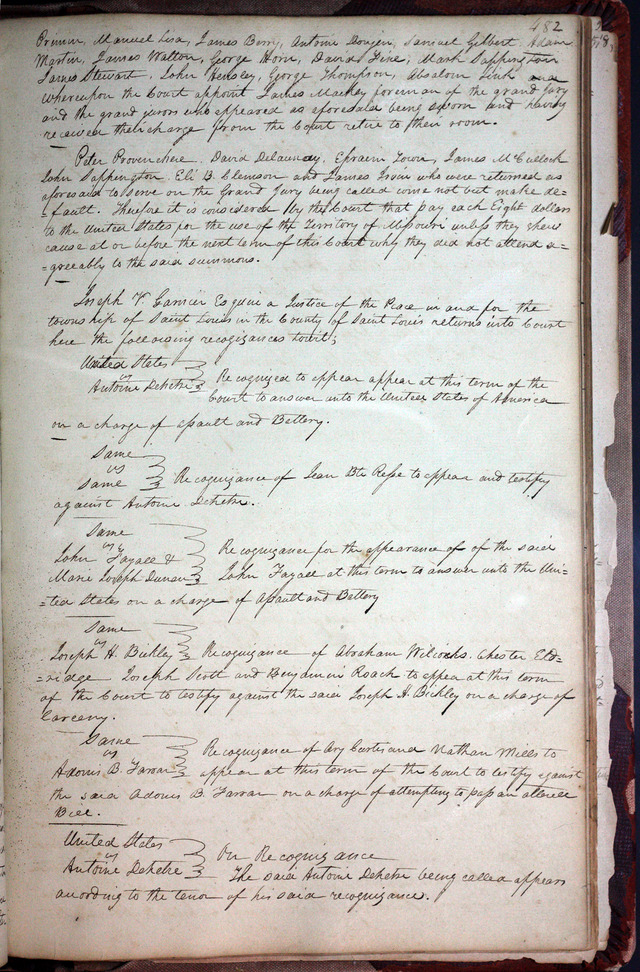 482
Primm, Manuel Lisa, James Berry, Antoine Dangen, Samuel Gilbert, Adam
Martin, James Walton, George Horn, David Fine, Mark Sappington
James Stewart, John Hensley, George Thompson, Absalom Link and
whereupon the Court appoint James Mackey foreman of the grand jury
and the grand jurors who appeared as aforesaid being sworn and having
received their charge from the Court retire to their room.
Peter Provenchere, David Delaunay, Ephraim Town, James McCulloch
John Sappington, Eli B. Clemson and James Irwin who were returned as
aforesaid to serve on the Grand Jury being called come not but make de-
-fault. Therefore it is considered by the Court that pay each Eight dollars
to the United States for the use of the Territory of Missouri unless they shew
cause at or before the next term of this Court why they did not attend a-
-greeably to the said summons.
Joseph V. Garnier Esquire a Justice of the Peace in and for the
township of Saint Louis in the County of Saint Louis returns into Court
here the following recognizances to wit;
United States
vs
Antoine Dehetre
Recognized to appear appear at this term of the
Court to answer unto the United States of America
on a charge of assault and Battery.
Same
vs
Same
Recognizance of Jean Bte to appear and testify
against Antoine Dehetre.
Same
vs
John Fayall &
Marie Joseph
Recognizance for the appearance of of the said
John Fayall at this term to answer unto the Uni-
-ted States on a charge of assault and Battery
Same
vs
Joseph H. Bickley
Recognizance of Abraham Wilcocks. Chester Eld-
-ridge Joseph Scott and Benjamin Roach to appear at this term
of the Court to testify against the said Joseph H. Bickley on a charge of
larceny.
Same
vs
Adonis B. Farrar
Recognizance of Ary Curtis and Nathan Mills to
appear at this term of the Court to testify against
the said Adonis B. Farrar on a charge of attempting to pass an altered
Bill.
United States
vs
Antoine Dehetre
On Recognizance
The said Antoine Dehetre being called appears
according to the tenor of his said recognizance.